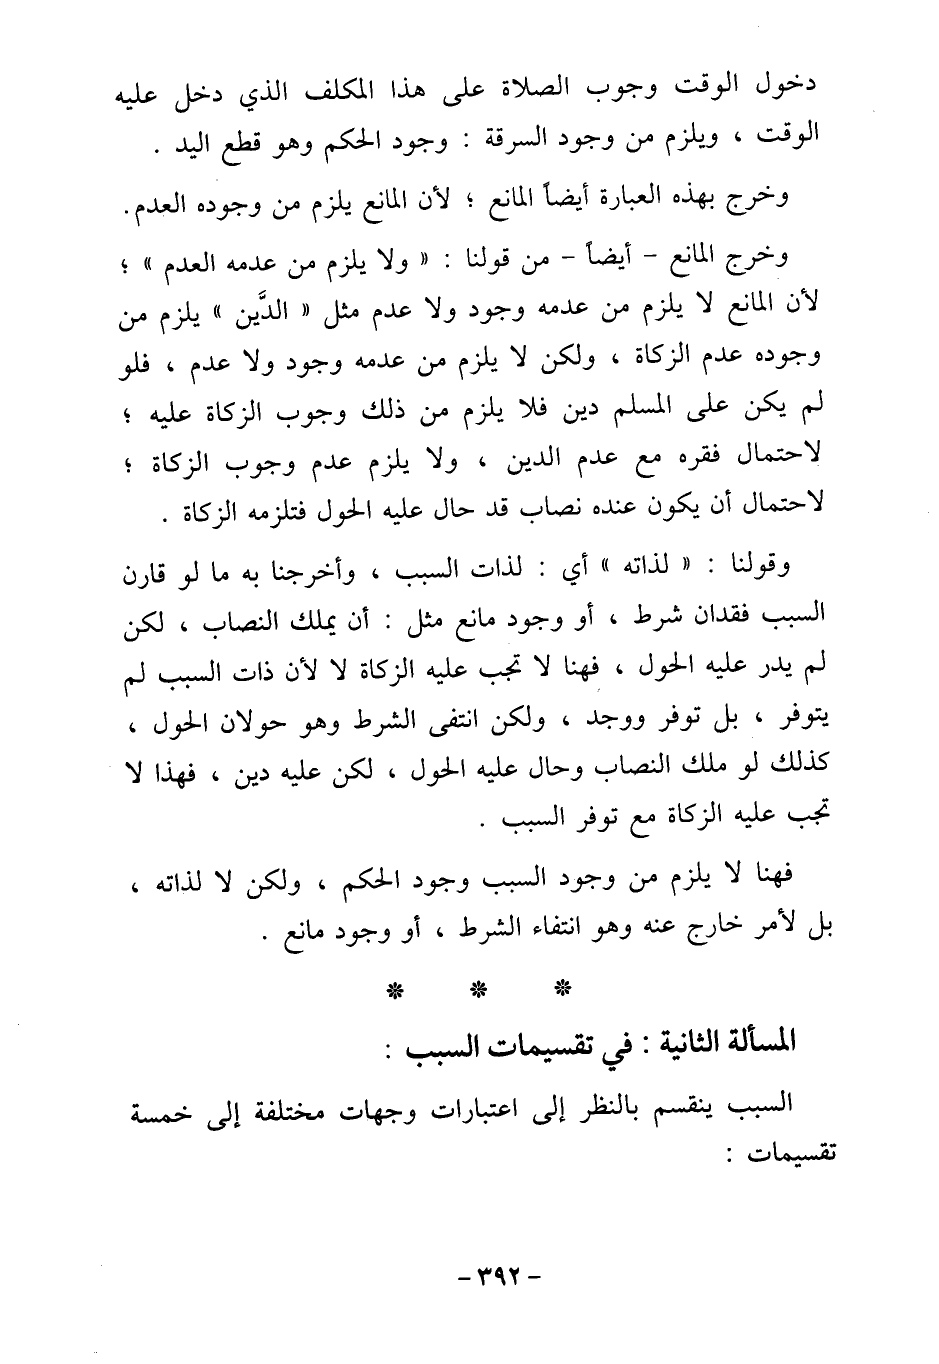 دخول الوقت وجوب الصلاة على هذا المكلف الذي دخل عليه
الوقت ، ويلزم من وجود السرقة : وجود الحكم وهو قطع اليد .
وخرج بهذه العبارة أيضاً المانع ؛ لأن المانع يلزم من وجوده العدم.
وخرج المانع - أيضاً - من قولنا : « ولا يلزم من عدمه العدم » ؛
لأن المانع لا يلزم من عدمه وجود ولا عدم مثل « الدَّين » يلزم من
وجوده عدم الزكاة ، ولكن لا يلزم من عدمه وجود ولا عدم ، فلو
لم يكن على المسلم دين فلا يلزم من ذلك وجوب الزكاة عليه ؛
لاحتمال فقره مع عدم الدين ، ولا يلزم عدم وجوب الزكاة ؛
لاحتمال أن يكون عنده نصاب قد حال عليه الحول فتلزمه الزكاة .
وقولنا : « لذاته » أي : لذات السبب ، وأخرجنا به ما لو قارن
السبب فقدان شرط ، أو وجود مانع مثل : أن يملك النصاب ، لكن
لم يدر عليه الحول ، فهنا لا تجب عليه الزكاة لا لأن ذات السبب لم
يتوفر ، بل توفر ووجد ، ولكن انتفى الشرط وهو حولان الحول ،
كذلك لو ملك النصاب وحال عليه الحول ، لكن عليه دين ، فهذا لا
تجب عليه الزكاة مع توفر السبب .
فهنا لا يلزم من وجود السبب وجود الحكم ، ولكن لا لذاته ،
بل لأمر خارج عنه وهو انتفاء الشرط ، أو وجود مانع .
* * *
المسألة الثانية : في تقسيمات السبب :
السبب ينقسم بالنظر إلى اعتبارات وجهات مختلفة إلى خمسة
تقسيمات :
- ٣٩٢ -